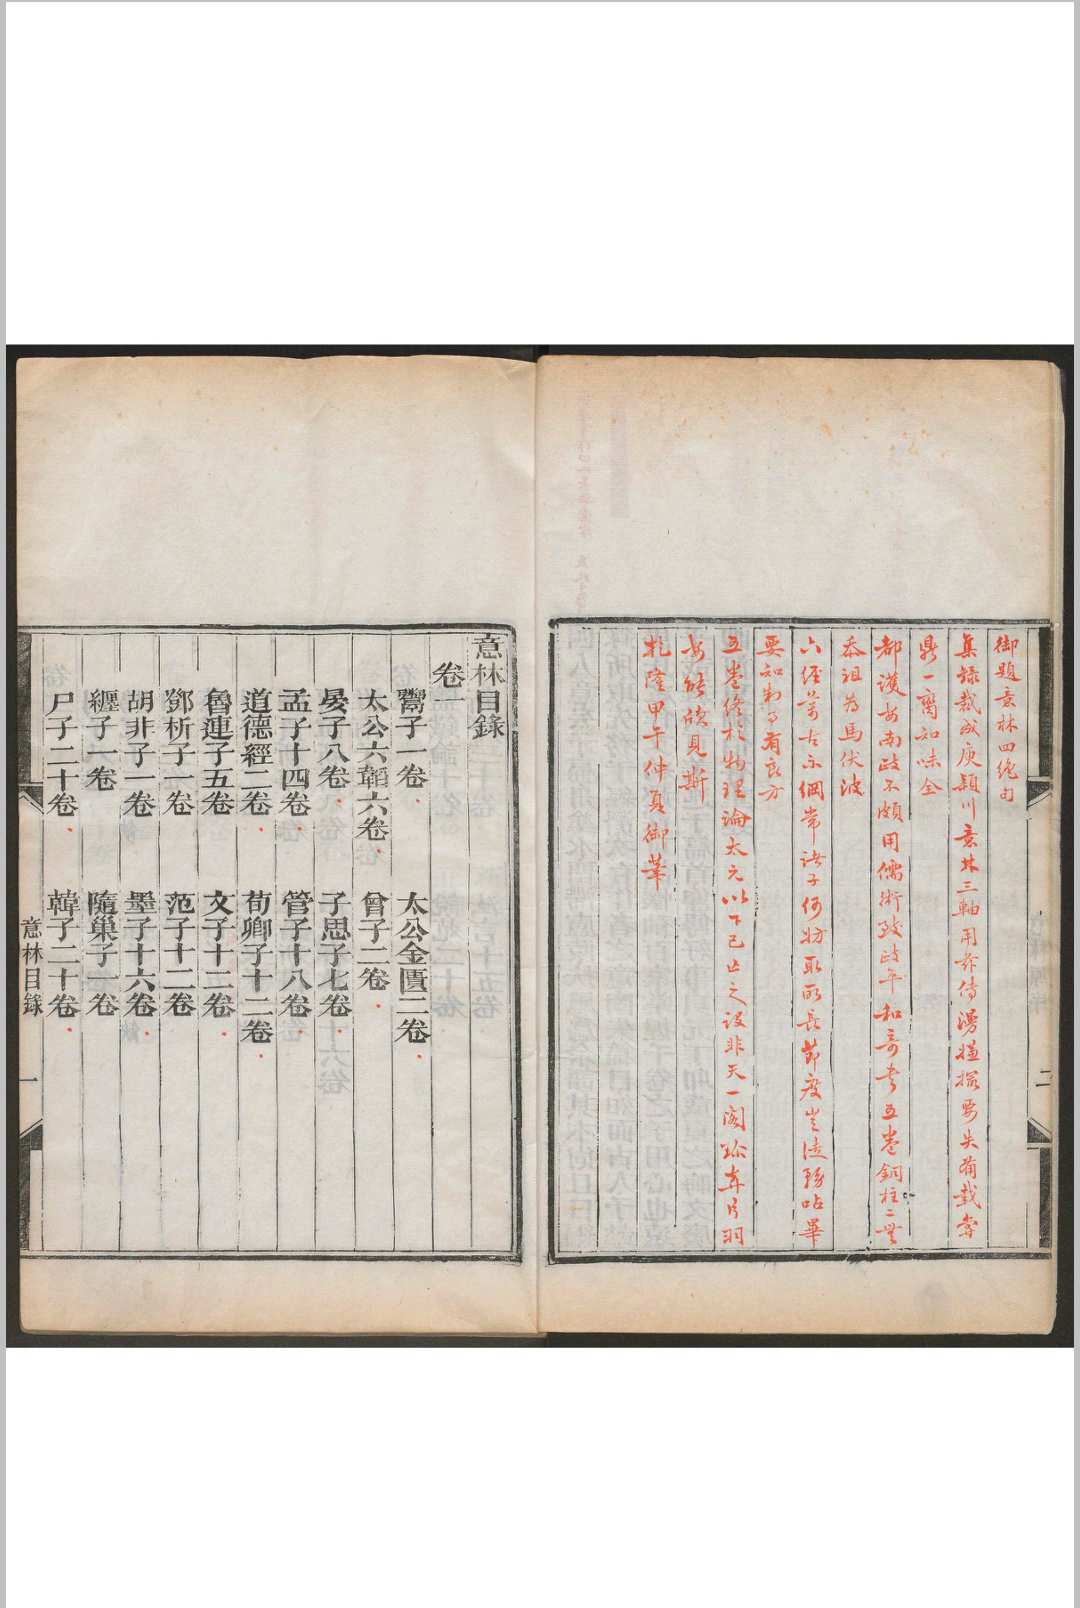 御題意林四絕句
集錄裁成庾穎川意林三軸用茲傳漫嫌撮要失備載嘗
鼎一臠知味全
都護安南政不頗用儒術致政平和奇書五卷銅柱二無
忝祖為馬伏波
六經萬古示綱常諸子何妨取所長節度豈徒務呫畢
要知制事有良方
五卷終於物理論太元以下已亡之設非天一閣珍弆片羽
安能欣見斯
乾隆甲午仲夏御筆
二
意林目錄
卷一
鬻子一卷 太公金匱二卷
太公六韜六卷 曾子二卷
晏子八卷 子思子七卷
孟子十四卷 管子十八卷
道德經二卷 荀卿子十二卷
魯連子五卷 文子十二卷
鄧析子一卷 范子十二卷
胡非子一卷 墨子十六卷
纏子一卷 隨巢子一卷
尸子二十卷 韓子二十卷
意林目錄 一